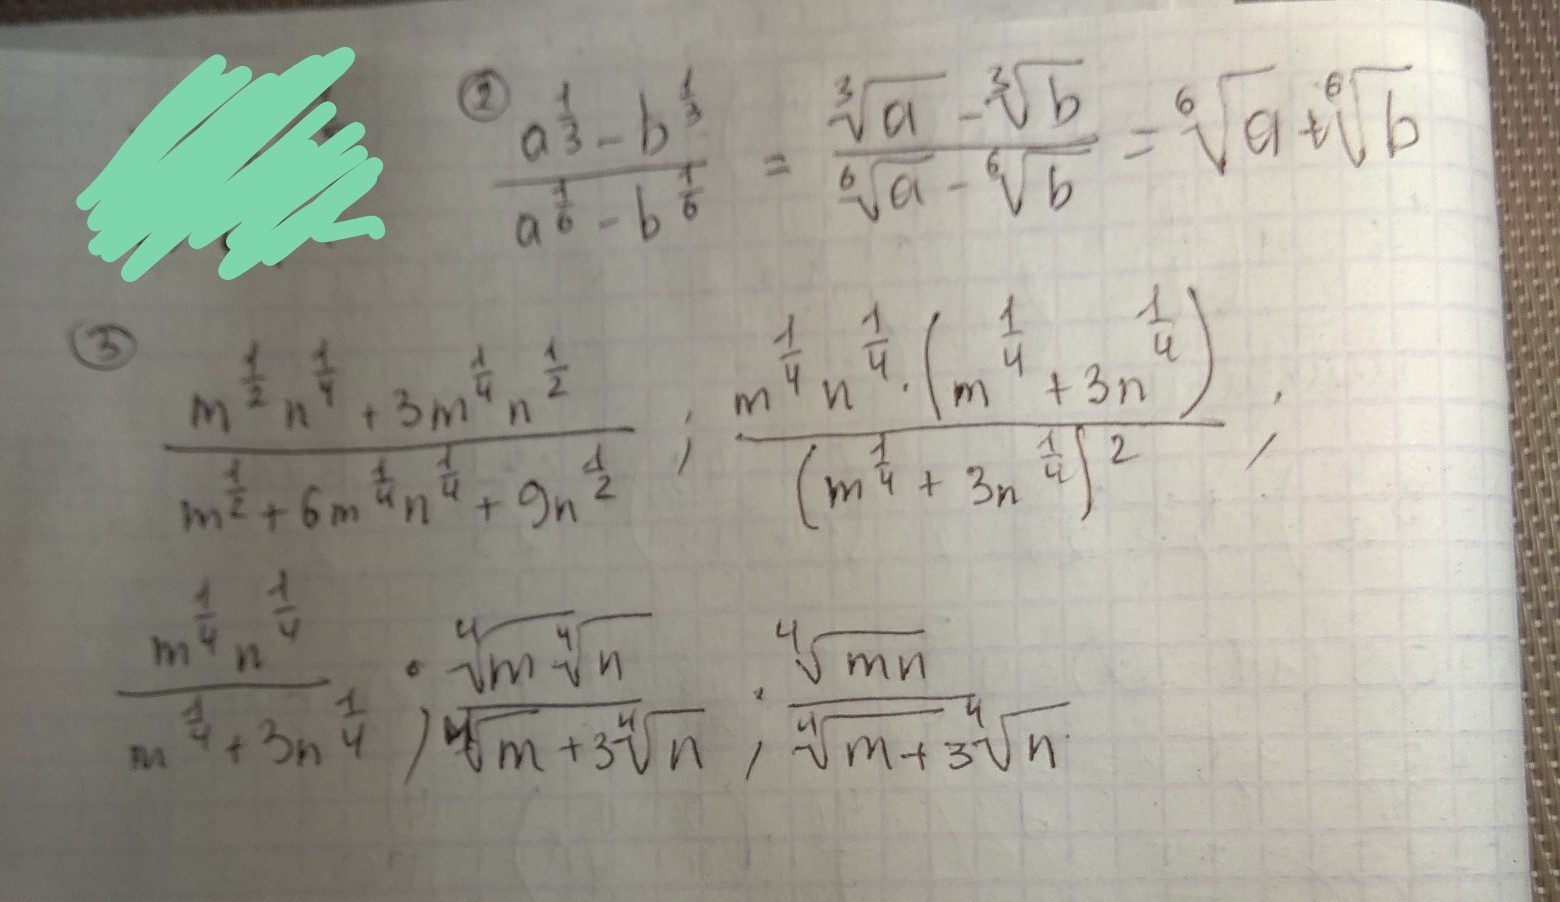 ② (a^(1/3) - b^(1/3)) / (a^(1/6) - b^(1/6)) = (∛a - ∛b) / (⁶√a - ⁶√b) = ⁶√a + ⁶√b
③ (m^(1/2) n^(1/4) + 3m^(1/4) n^(1/2)) / (m^(1/2) + 6m^(1/4) n^(1/4) + 9n^(1/2)) ; (m^(1/4) n^(1/4) · (m^(1/4) + 3n^(1/4))) / (m^(1/4) + 3n^(1/4))^2 ;
(m^(1/4) n^(1/4)) / (m^(1/4) + 3n^(1/4)) ; (∜m ∜n) / (∜m + 3∜n) ; ∜(mn) / (∜m + 3∜n)